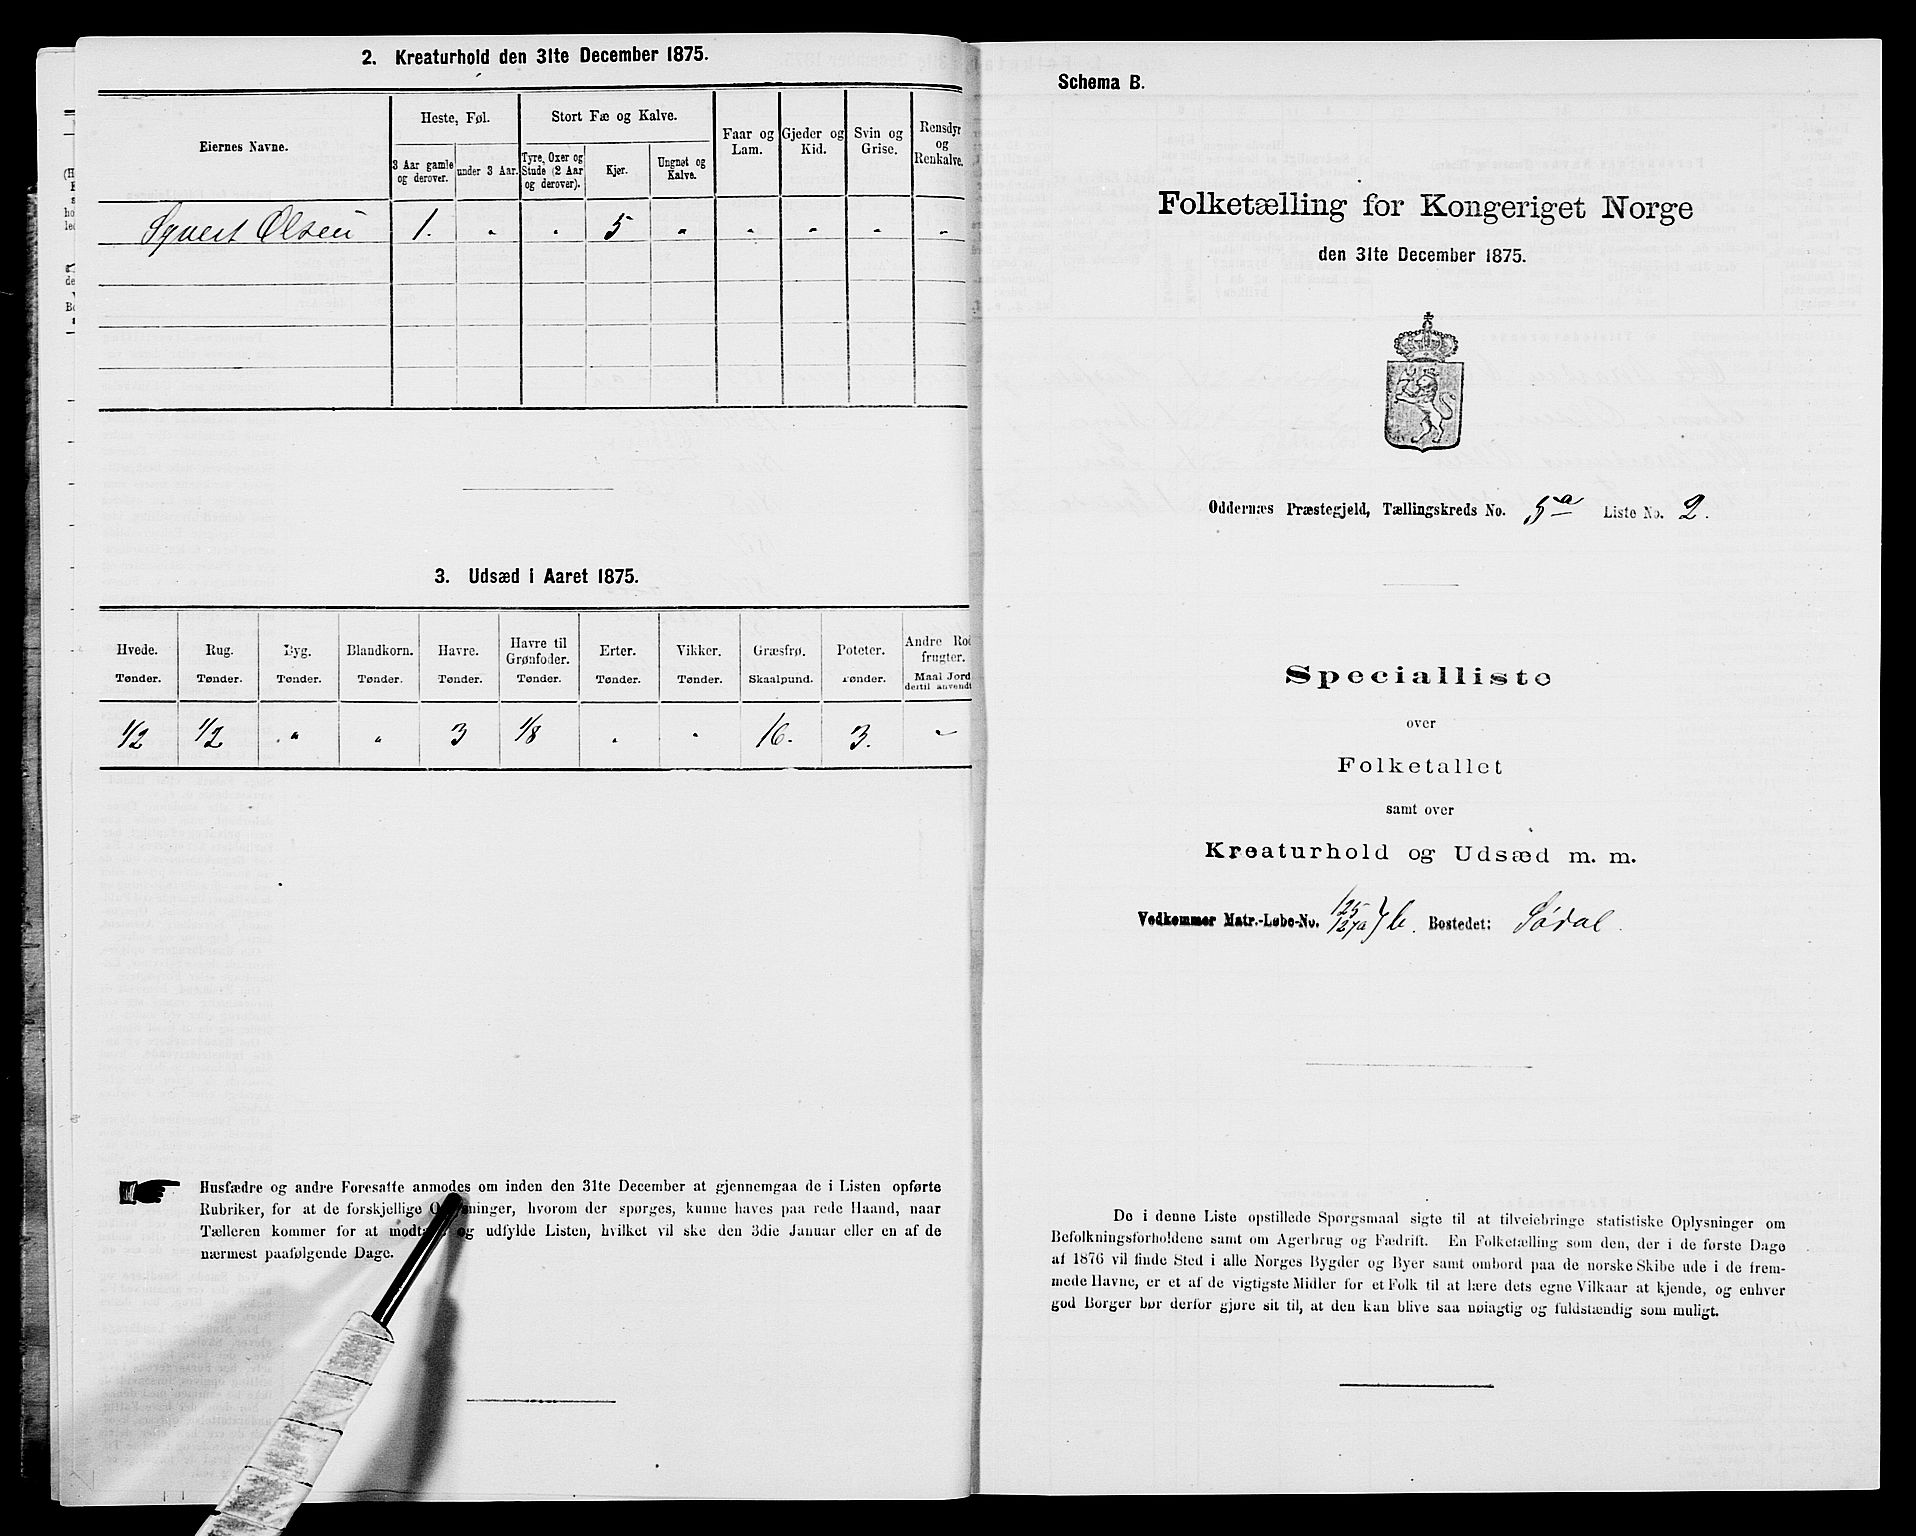 2. Kreaturhold den 31te December 1875.
Eiernes Navne.
Heste, Føl.
Stort Fæ og Kalve.
Faar og Lam.
Gjeder og Kid.
Svin og Grise.
Rensdyr og Renkalve.
3 Aar gamle og derover.
under 3 Aar.
Tyre, Oxer og Stude (2 Aar og derover).
Kjør.
Ungnøt og Kalve.
Syvert Olsen 1. " " 5 " " " " "
3. Udsæd i Aaret 1875.
Hvede. Rug. Byg. Blandkorn. Havre. Havre til Grønfoder. Erter. Vikker. Græsfrø. Poteter. Andre Rodfrugter.
Tønder. Tønder. Tønder. Tønder. Tønder. Tønder. Tønder. Tønder. Skaalpund. Tønder. Maal Jord dertil anvendt
1/2 1/2 " " 3 1/8 " " 16. 3. "
Husfædre og andre Foresatte anmodes om inden den 31te December at gjennemgaa de i Listen opførte
Rubriker, for at de forskjellige Oplysninger, hvorom der spørges, kunne haves paa rede Haand, naar
Tælleren kommer for at modtage og udfylde Listen, hvilket vil ske den 3die Januar eller en af de
nærmest paafølgende Dage.
Schema B.
Folketælling for Kongeriget Norge
den 31te December 1875.
Oddernæs Præstegjeld, Tællingskreds No. 5a Liste No. 2.
Specialliste
over
Folketallet
samt over
Kreaturhold og Udsæd m. m.
Vedkommer Matr.-Løbe-No. 125/127a } b. Bostedet: Södal.
De i denne Liste opstillede Spørgsmaal sigte til at tilveiebringe statistiske Oplysninger om
Befolkningsforholdene samt om Agerbrug og Fædrift. En Folketælling som den, der i de første Dage
af 1876 vil finde Sted i alle Norges Bygder og Byer samt ombord paa de norske Skibe ude i de frem-
mede Havne, er et af de vigtigste Midler for et Folk til at lære dets egne Vilkaar at kjende, og enhver
god Borger bør derfor gjøre sit til, at den kan blive saa nøiagtig og fuldstændig som muligt.